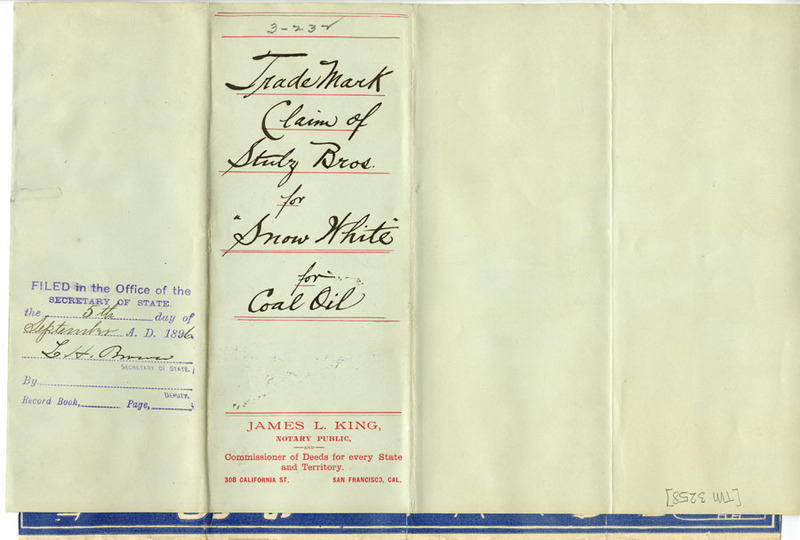 3-232
Trade Mark
Claim of
Stulz Bros.
for
"Snow White"
for
Coal Oil
JAMES L. KING,
NOTARY PUBLIC,
—AND—
Commissioner of Deeds for every State
and Territory.
308 CALIFORNIA ST. SAN FRANCISCO, CAL.
FILED in the Office of the
SECRETARY OF STATE.
the 5th day of
September A. D. 1896
L. H. Brown
SECRETARY OF STATE.
By
DEPUTY.
Record Book, Page,
[TM 3258]